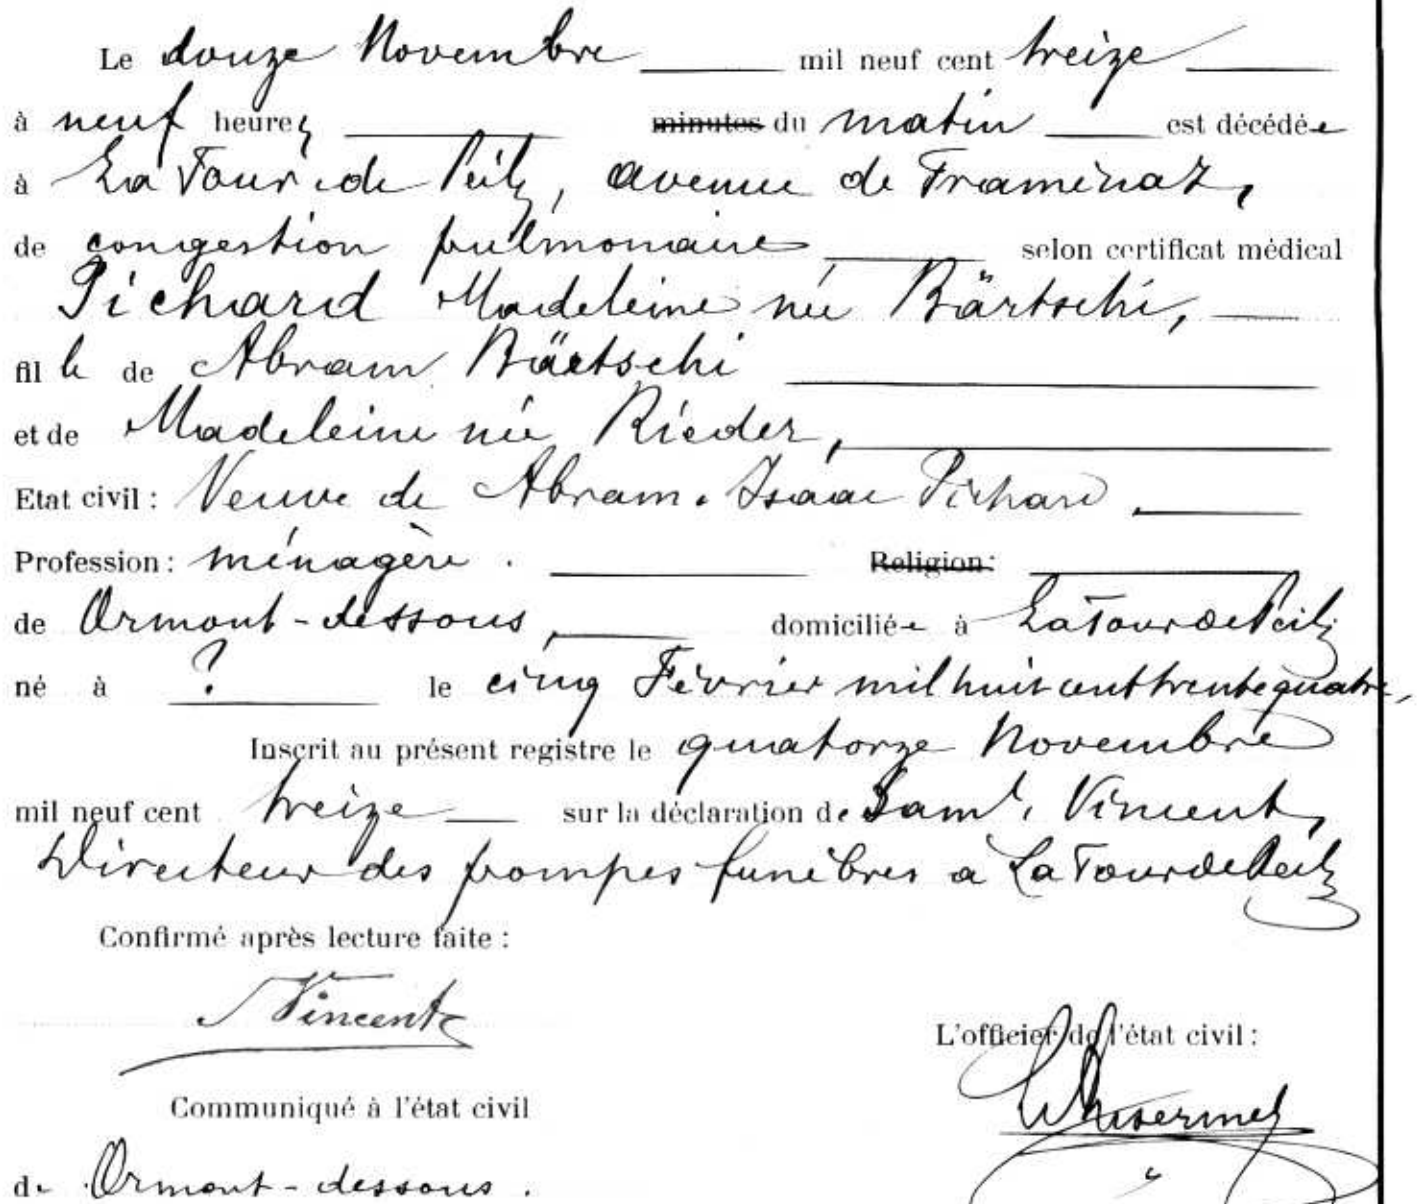 Le douze Novembre mil neuf cent treize
à neuf heures minutes du matin est décédée
à La Tour-de Peilz, avenue de Traménaz,
de congestion pulmonaire selon certificat médical
Pichard Madeleine née Bärtschi,
fille de Abram Bäetschi
et de Madeleine née Rieder,
Etat civil : Veuve de Abram-Isaac Pichard
Profession : ménagère . Religion :
de Ormont-dessous, domiciliée à La Tour de Peilz
né à ? le cinq Février mil huit cent trente quatre,
Inscrit au présent registre le quatorze Novembre
mil neuf cent treize sur la déclaration de Saml. Vincent,
Directeur des pompes funèbres à La Tour de Peilz
Confirmé après lecture faite :
S Vincent
L'officier de l'état civil :
Communiqué à l'état civil
de Ormont-dessous.